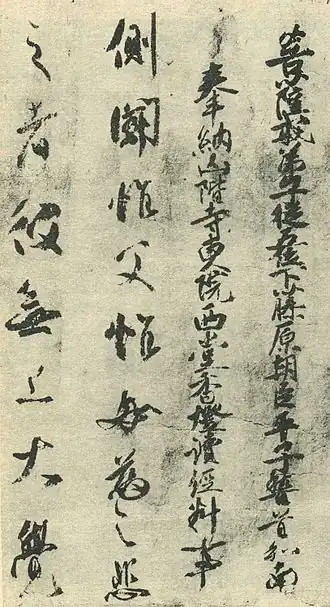 菩薩戒弟子從五位下藤原朝臣平子誓首和南
奉納山階寺東院西堂香燈讀經料事
側聞惟父惟母慈之悲
之者彼無上大覺